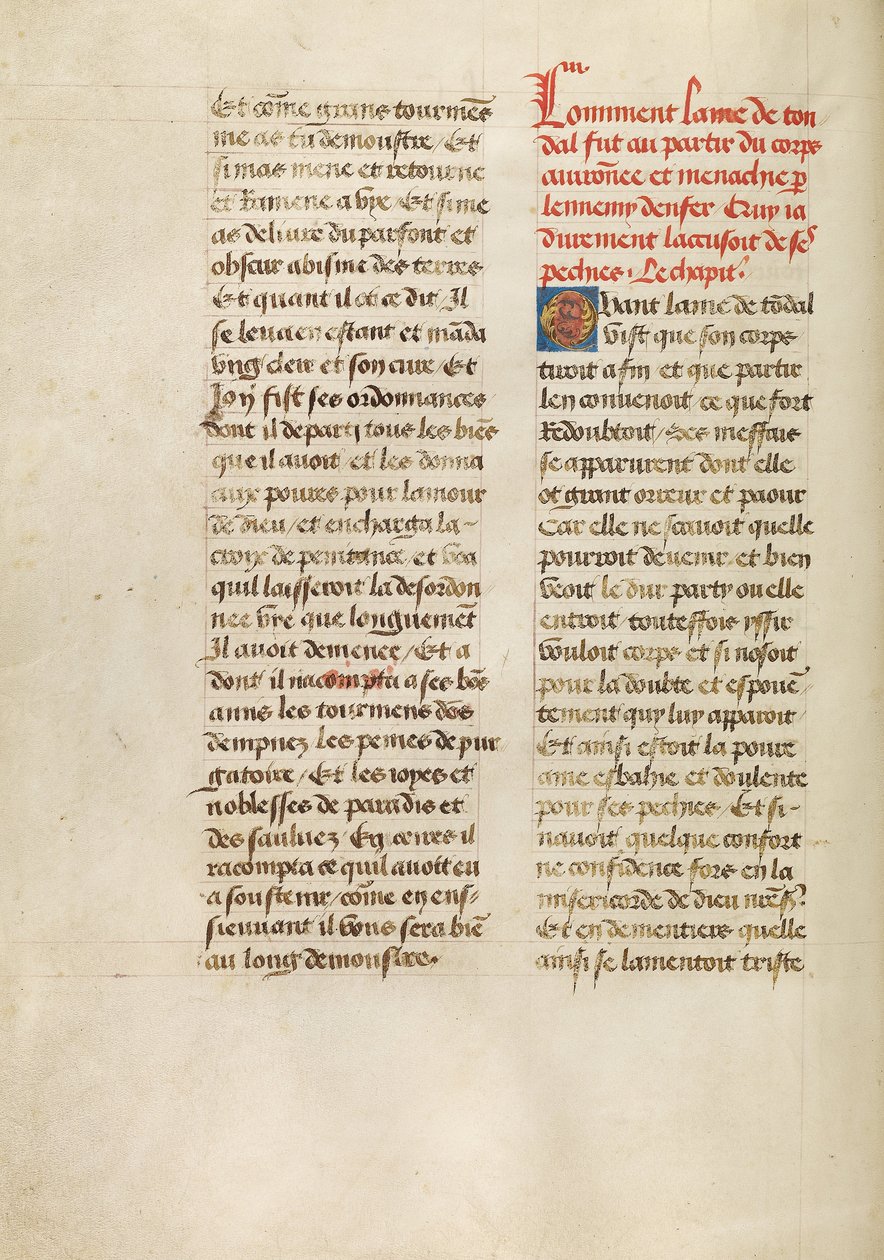 Et cōme grans tourmēs
me as tu demonstre / Et
si mas mene et retourne
et Ramene a vye / Et si me
as deliure du parfont et
obscur abisme des terres
Et quant il ot ce dit / Il
se leua en estant et māda
vng clerc et son cure / Et
Joÿ fist ses ordonnances
dont il departj tous les biēs
que il auoit / et les donna
aux poures pour lamour
de dieu / et encharga la
croix de penitance / et voa
quil laisseroit la desordon
nee vye que longuemēt
Il auoit demenee / Et a
dont il racompta a ses bōs
amis les tourmens des
dempnez les peines de pur
gatoire / Et les ioyes et
noblesses de paradis et
des sauluez / En ceures il
racompta ce quil auoit eu
a soustenir / cōme en ens
sieuuant il vous sera biē
au long demonstre.
iiij.
Comment lame de ton
dal fut au partir du corps
auirōnee et menachie p
lennemy denfer / Quy ia
durement laccusoit de ses
pechies. Le chapit.
Quant lame de tōdal
vist que son corps
tiroit a fin et que partir
len conuenoit / ce que fort
Redoubtoit / Ses meffais
se apparurent dont elle
ot grant orreur et paour
Car elle ne scauoit quelle
pourroit deuenir / et bien
veoit le dur party ou elle
entroit / touteffois yssir
vouloit corps et si nosoit
pour la doubte et espouē
tement quy luy apparoit
Et ainsi estoit la poure
ame esbahie et doulente
pour ses pechies / Et si
nauoit quelque confort
ne confidence fors en la
misericorde de dieu nrēsr.
Et en dementiers quelle
ainsi se lamentoit triste